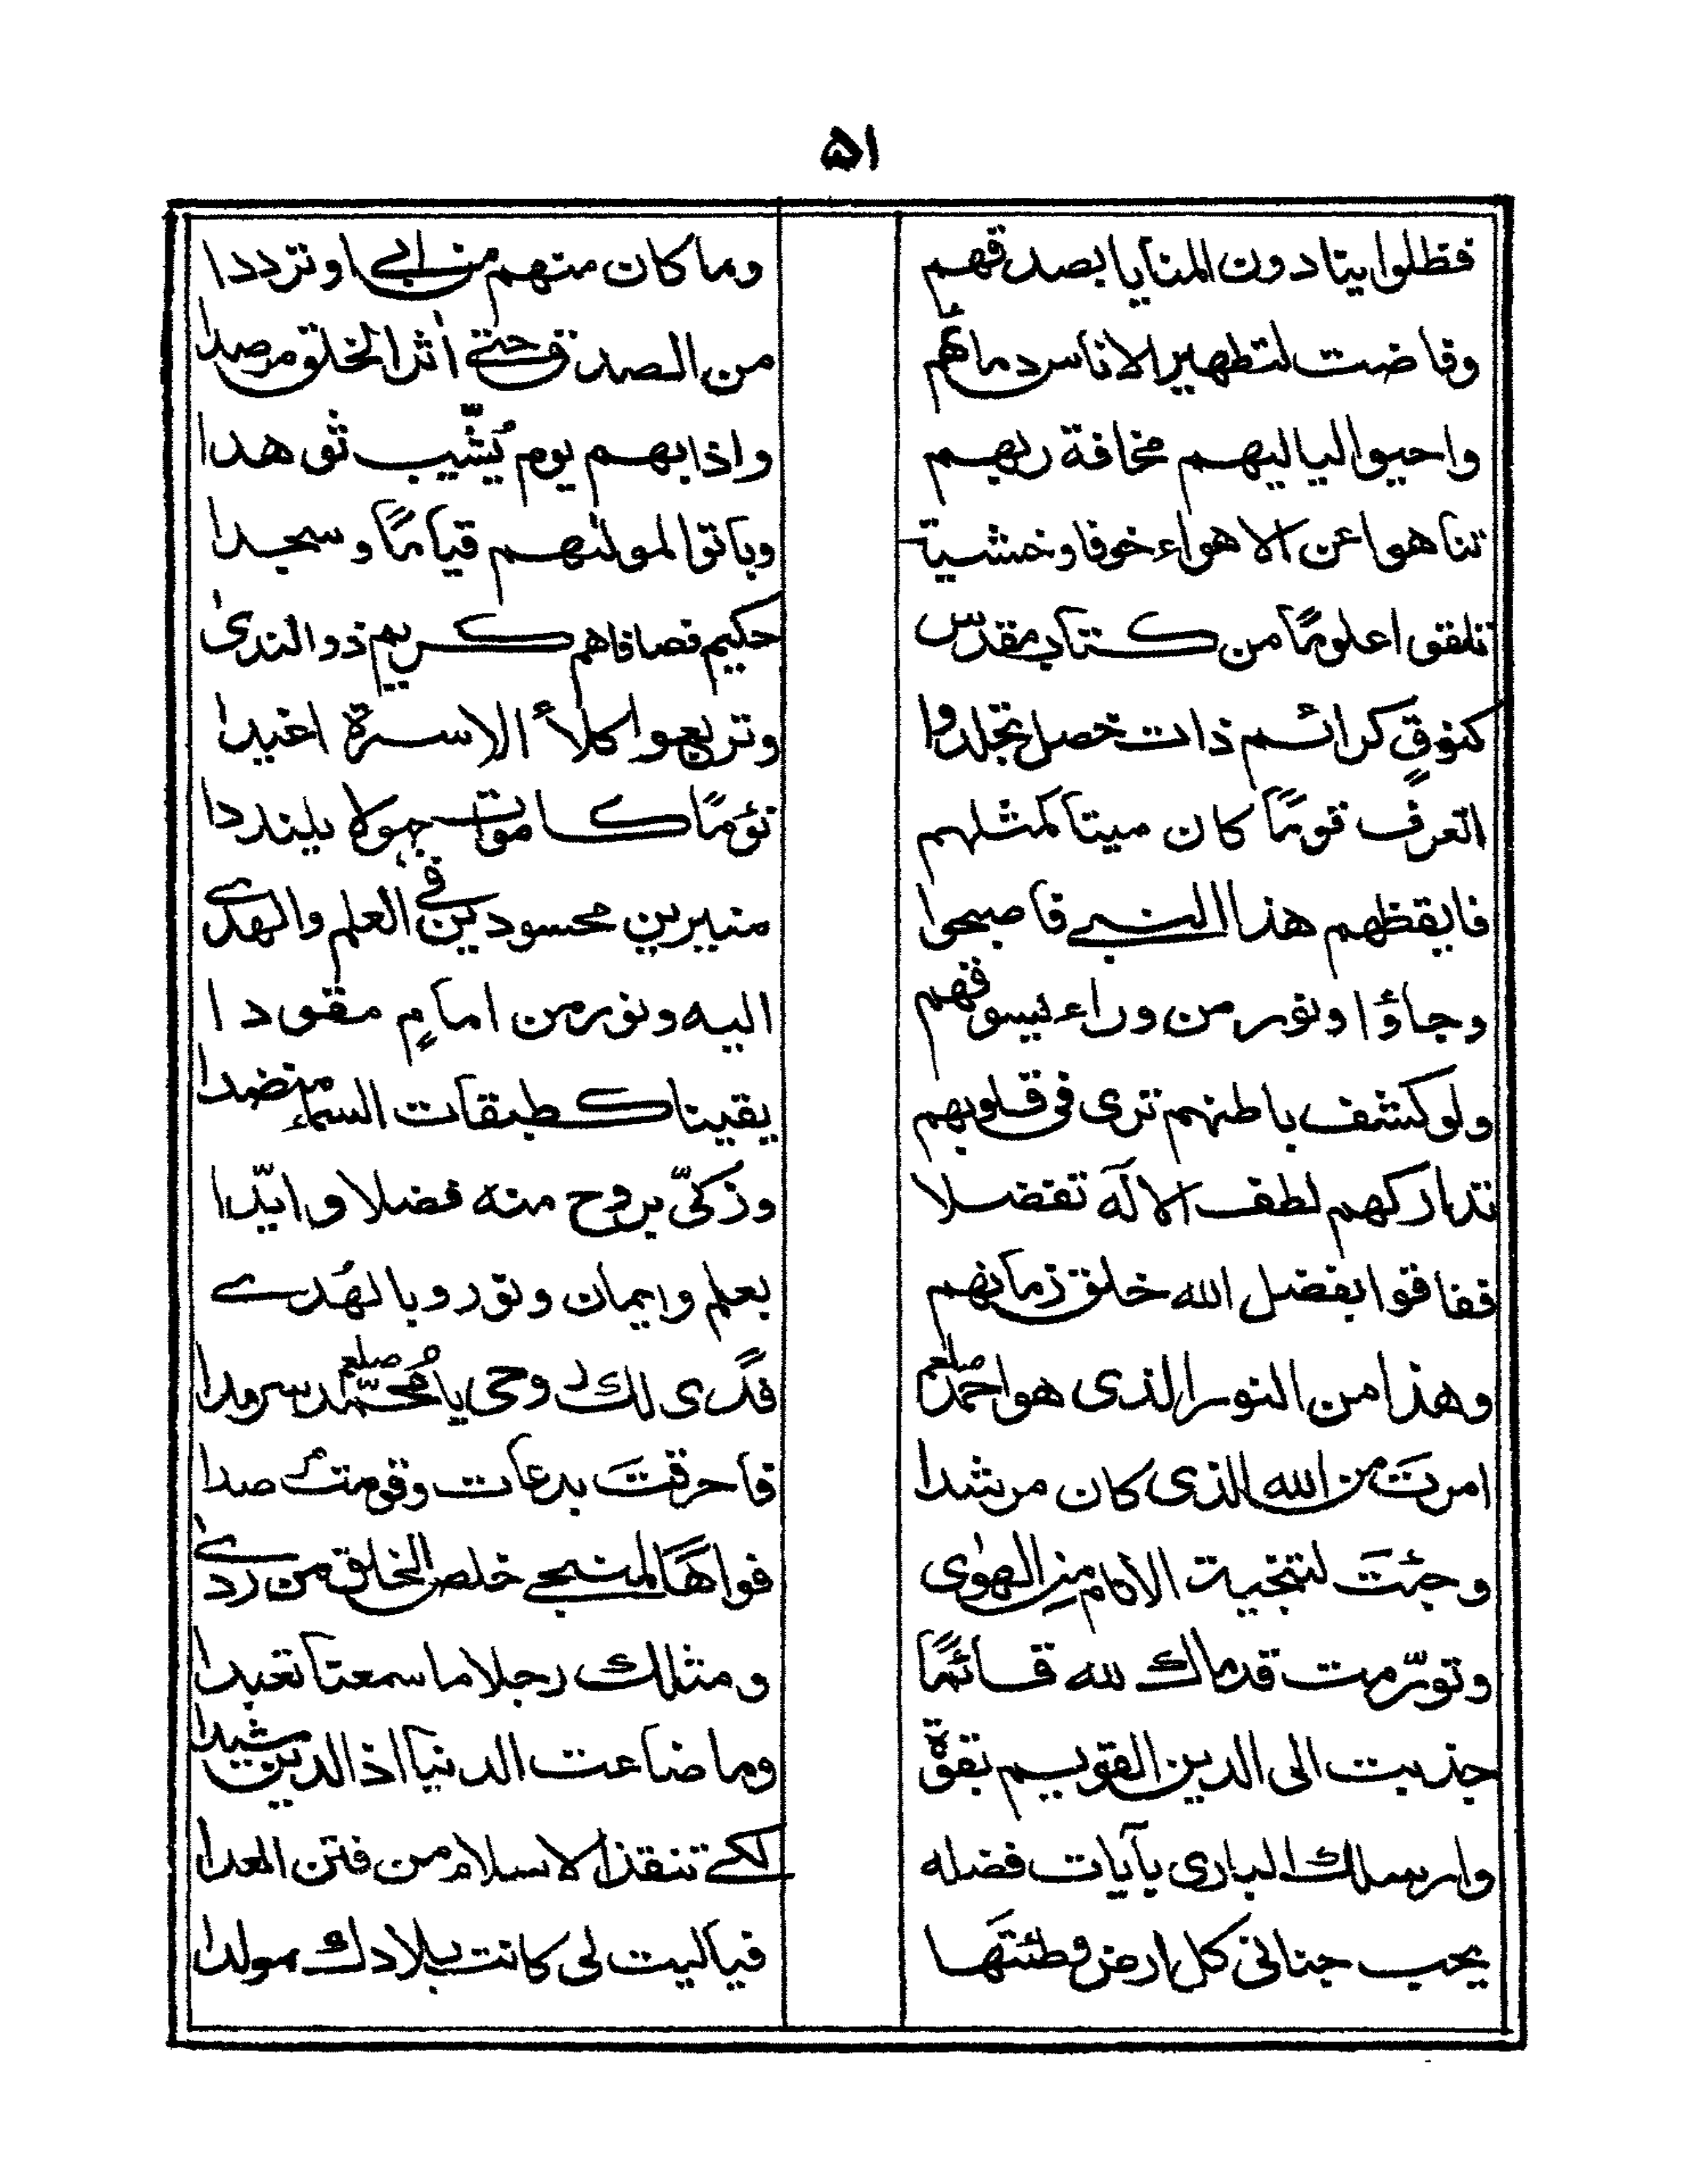 ۵۱
فظلوا ينادون المنايا بصدقهم
وما كان منهم من ابى او ترددا
وفاضت لتطهير الاناس دماءهم
من الصدق حتى اثر الخلق مرصدا
واحيوا لياليهم مخافة ربهم
واذابهم يوم يُشَيّب ثوهدا
تناهوا عن الاهواء خوفا وخشية
وباتوا لمولٰهم قياما وسجدا
تلقوا علوما من كتاب مقدس
حكيم فصافاهم كريم ذو الندى
كنوقٍ كرائم ذات خصل تجلدوا
وتربعوا كلأ الاسرة اغيدا
اتعرف قوما كان ميتا كمثلهم
نؤمًا كاموات جهولا يلنددا
فايقظهم هذا النبى فاصبحوا
منيرين محسودين فى العلم والهدى
وجاؤا ونور من وراء يسوقهم
اليه ونور من امامٍ مقودا
ولو كشف باطنهم ترى فى قلوبهم
يقينا كطبقات السماء منضدا
تداركهم لطف الاله تفضلا
وزكّى بروح منه فضلا وايّدا
ففاقوا بفضل الله خلق زمانهم
بعلم وايمان ونور وبالهُدى
وهذا من النور الذى هو احمد صلعم
فدًى لك روحى يا محمّد صلعم سرمدا
امرتَ من الله الذى كان مرشدا
فاحرقتَ بدعات وقومتَ صدا
وجئتَ لتنجية الانام من الهوى
فواهًا لمنجى خلص الخلق من ردى
وتورّمت قدماك لله قائمًا
ومثلك رجلا ما سمعنا تعبدا
جذبت الى الدين القويم بقوة
وما ضاعت الدنيا اذ الدين شيدا
وارسلك البارى بآيات فضله
لكى تنقذ الاسلام من فتن العدا
يحب جنانى كل ارض وطئتَها
فياليت لى كانت بلادك مولدا